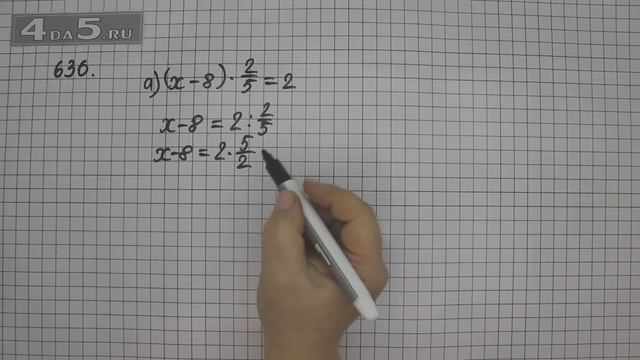 4 DA 5.RU
636.
а) (x-8) · 2/5 = 2
x-8 = 2 : 2/5
x-8 = 2 · 5/2